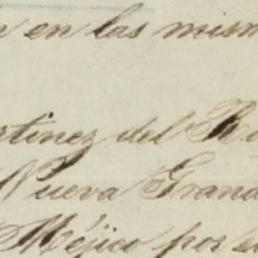 en las mism
rtinez del R
Nueva Grana
Méjico por